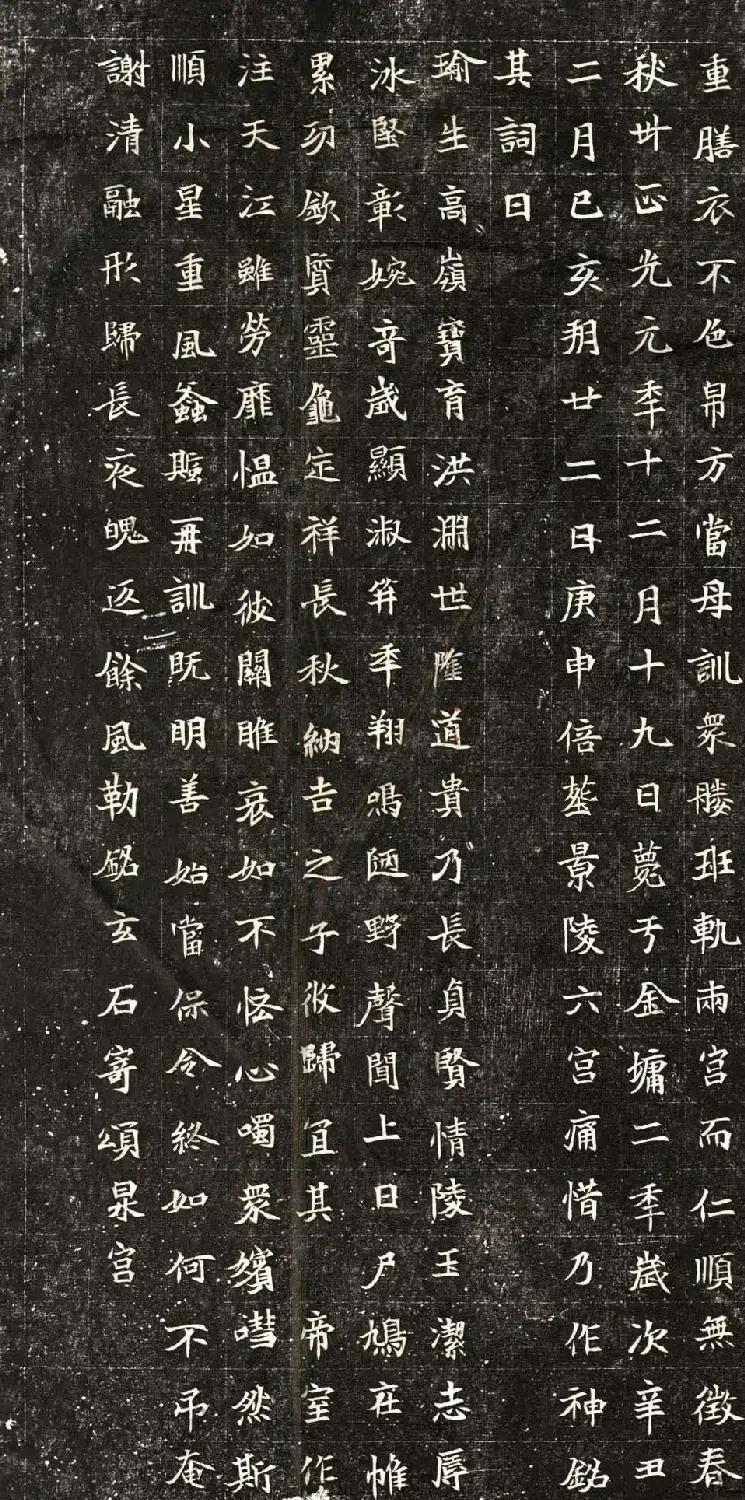 重膳衣不色帛方當母訓衆媵班軌兩宮而仁順無徵春
秋卅正光元季十二月十九日薨于金墉二季歲次辛丑
二月己亥朔廿二日庚申倍塟景陵六宮痛惜乃作神銘
其詞曰
瑜生高嶺寶育洪淵世匯道貴乃長貞賢情陵玉潔志辱
氷堅彰婉奇歲顯淑笄年翔鳴陋野聲聞上日尸鳩在帷
累劢歛質靈龜定祥長秋納吉之子攸歸宜其帝室作
注天江雖勞靡愠如彼關雎哀如不恡心噣衆嬪嘒然斯
順小星重風螽斯再訓既明善始當保令終如何不吊奄
謝清融形歸長夜魄返餘風勒銘玄石寄頌泉宮